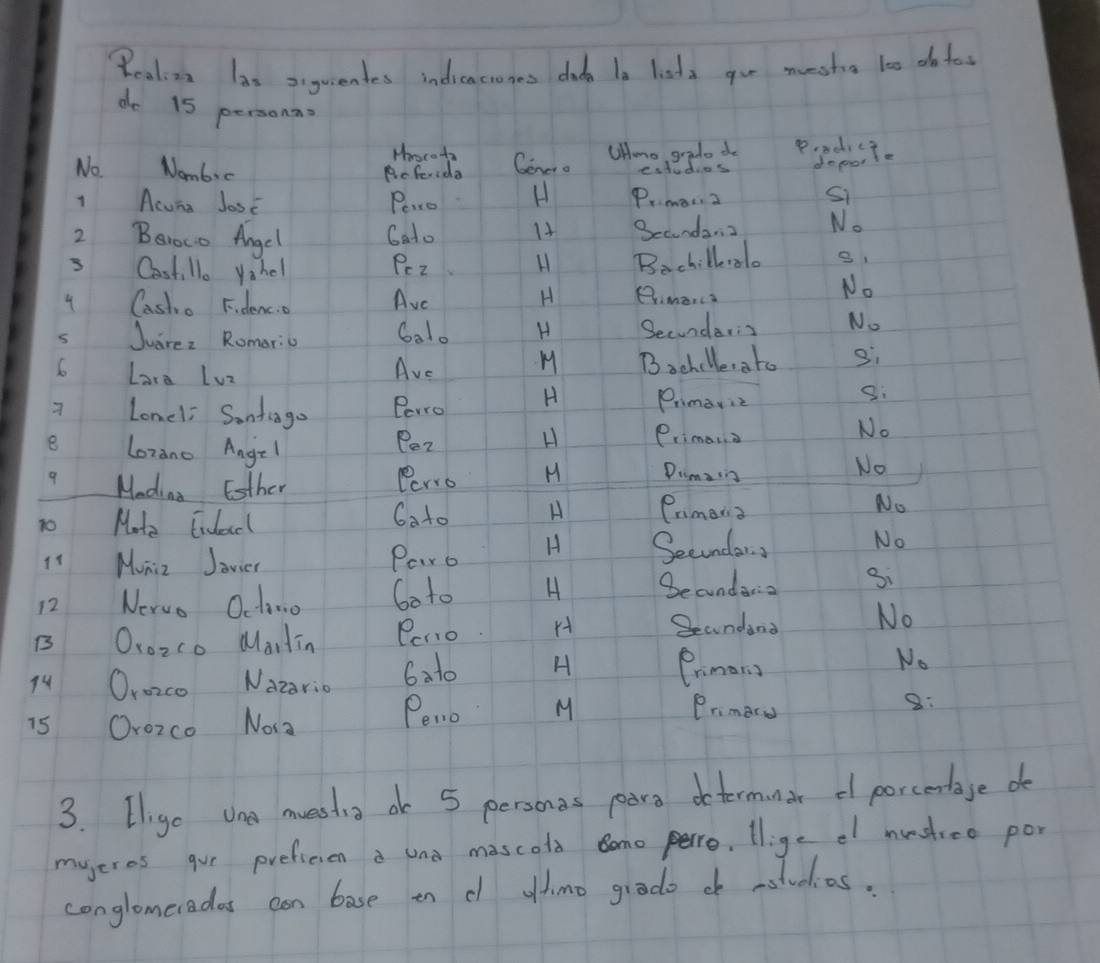 Realiza las siguientes indicaciones dada la lista que muestra los datos
de 15 personas
No. Nombre Mascota Preferida Género Ultimo grado de estudios Practica deporte
1 Acuña José Perro H Primaria Si
2 Barocio Angel Gato H Secundaria No
3 Castillo Yahel Pez H Bachillerato Si
4 Castro Fidencio Ave H Primaria No
5 Juárez Romario Gato H Secundaria No
6 Lara Luz Ave M Bachillerato Si
7 Lomeli Santiago Perro H Primaria Si
8 Lozano Angel Pez H Primaria No
9 Medina Esther Perro M Primaria No
10 Mota H Gato Primaria No
11 Muñiz Javier Perro H Secundaria No
12 Nervo Octavio Gato H Secundaria Si
13 Orozco Martín Perro H Secundaria No
14 Orozco Nazario Gato H Primaria No
15 Orozco Nora Perro M Primaria Si
3. Elige una muestra de 5 personas para determinar el porcentaje de
mujeres que prefieren a una mascota como perro. Elige el muestreo por
conglomerados con base en el ultimo grado de estudios.